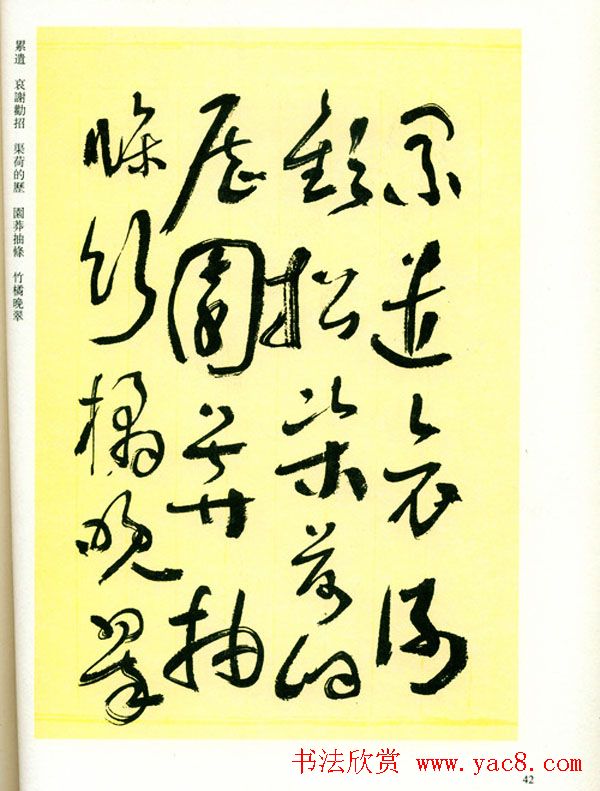 累遣哀謝
歡招渠荷的
歷園莽抽
條竹橘晚翠
累遣 哀謝勸招 渠荷的歷 園莽抽條 竹橘晚翠
书法欣赏 www.yac8.com
42